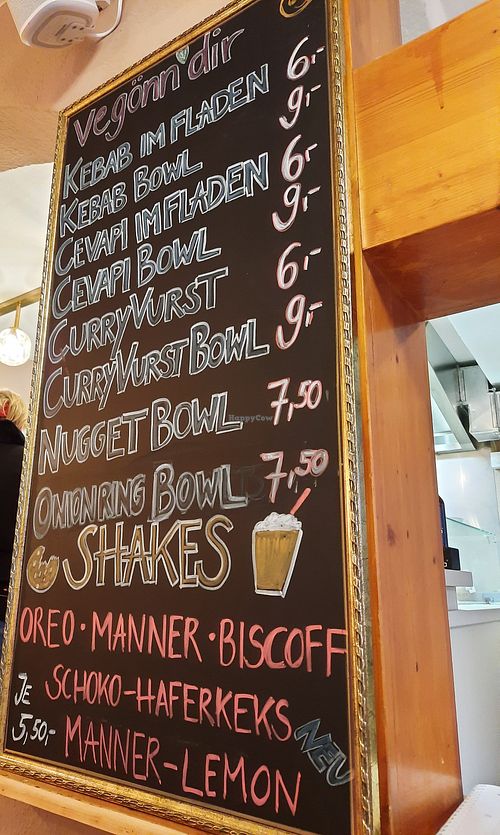 vegönn dir
KEBAB IM FLADEN 6,-
KEBAB BOWL 9,-
CEVAPI IM FLADEN 6,-
CEVAPI BOWL 9,-
CURRYVURST 6,-
CURRYVURST BOWL 9,-
NUGGET BOWL 7,50
ONIONRING BOWL 7,50
SHAKES
OREO · MANNER · BISCOFF
SCHOKO-HAFERKEKS
MANNER-LEMON
JE
5,50,-
NEU
HappyCow